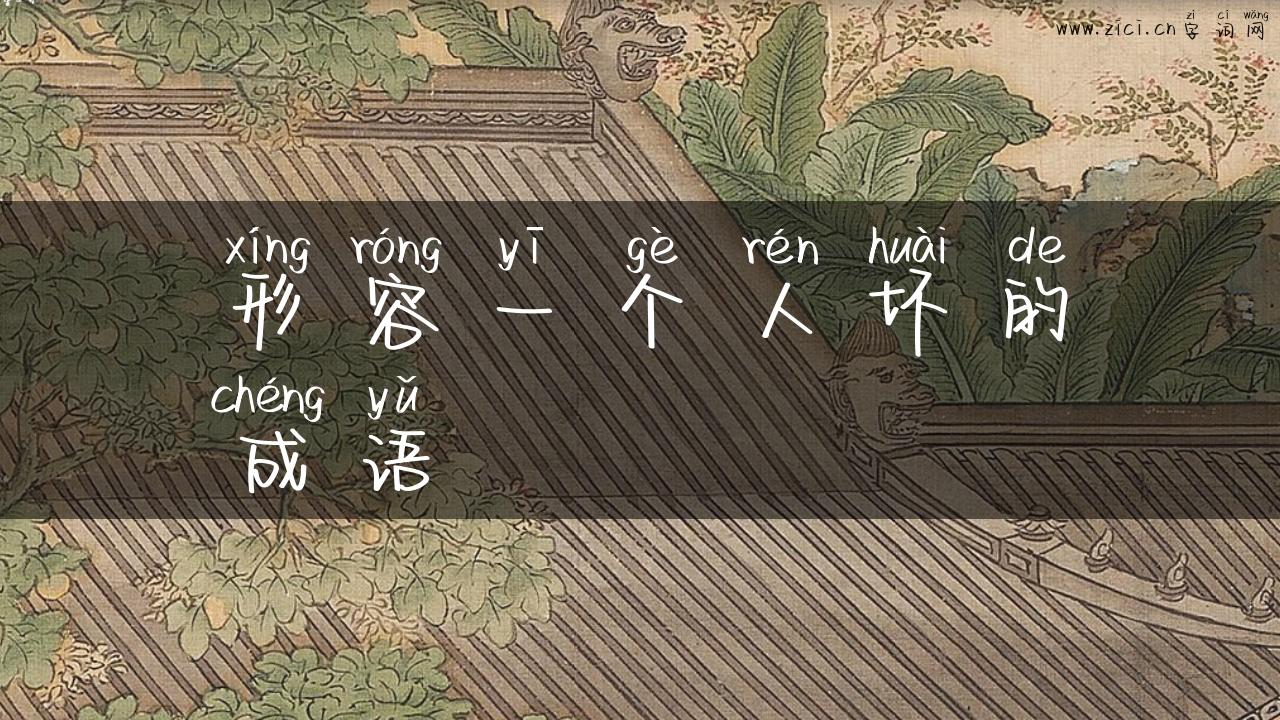 zì cí wǎng
www.zici.cn 字词网
xíng róng yī gè rén huài de
形容一个人坏的
chéng yǔ
成语